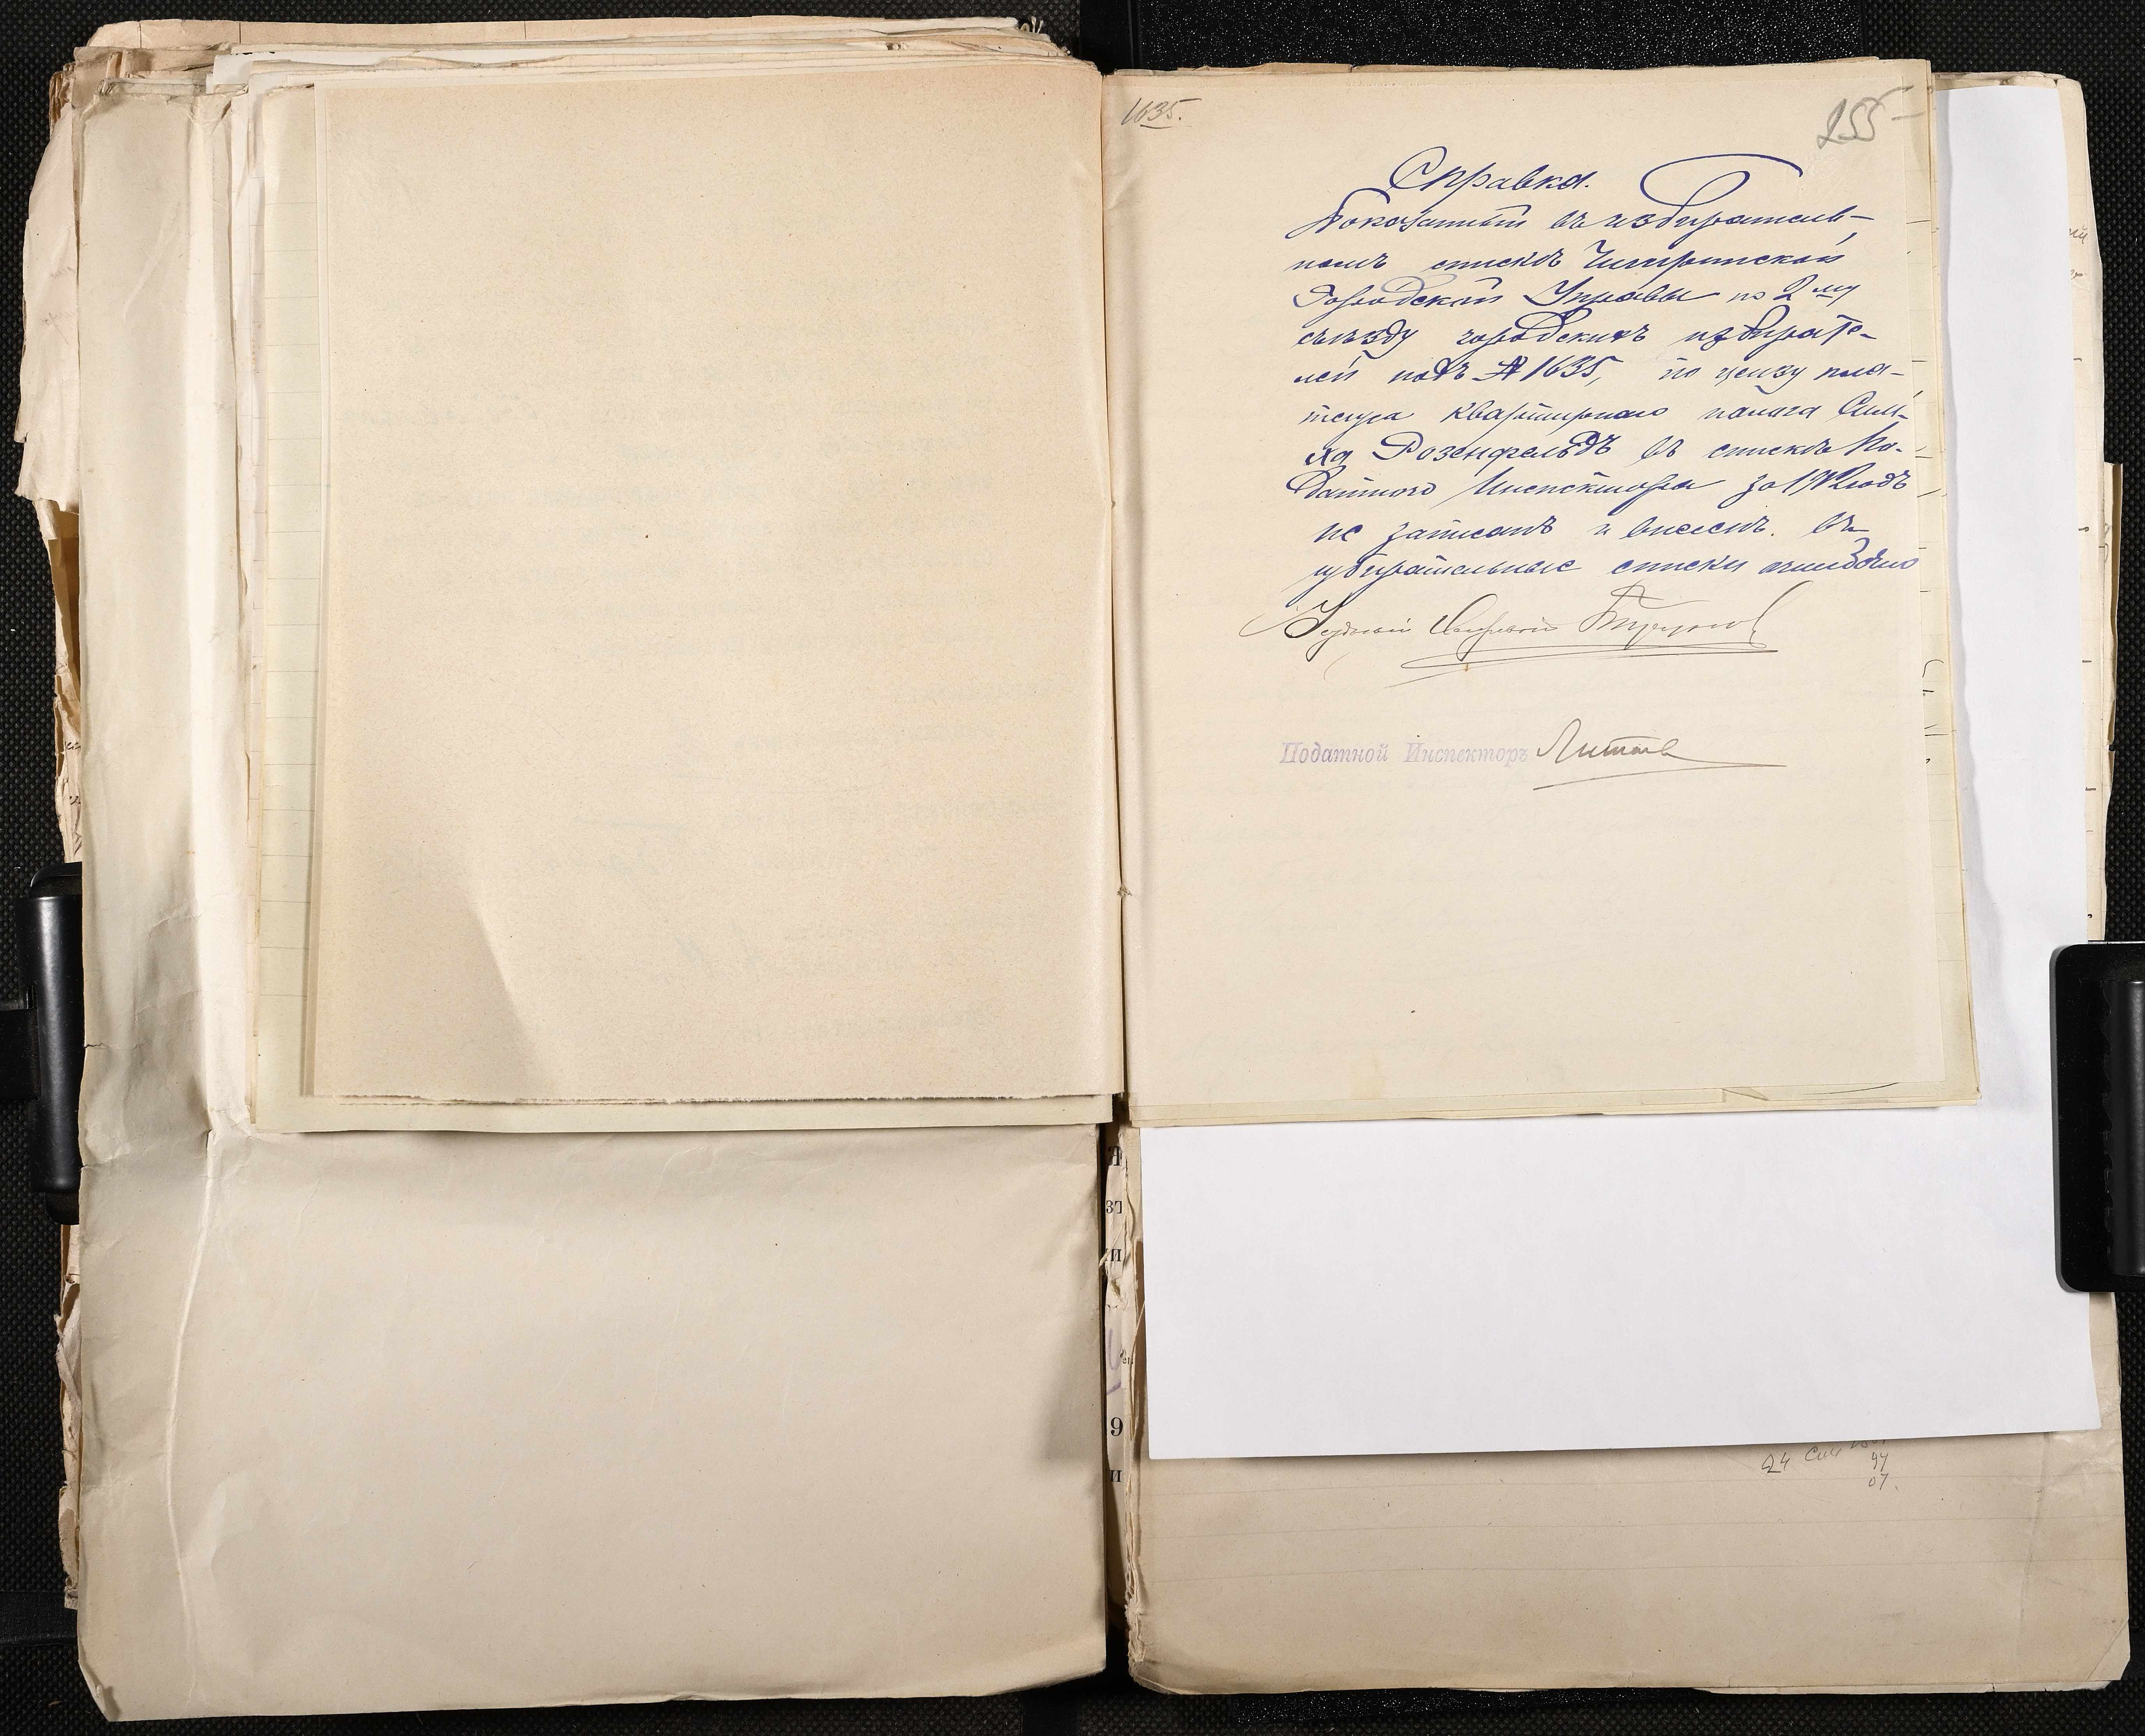 1635.
255
Справка.
Показанный въ избиратель-
номъ списке Чигиринской
Городской Управы по 2му
съезду городскихъ избирате-
лей подъ № 1635, по цензу пла-
тера квартирнаго налога Сим-
ха Розенфельдъ въ списке По-
датного Инспектора за 1912 годъ
не записанъ и внесенъ въ
избирательные списки ошибочно
Податной Инспекторъ
24
97
07.